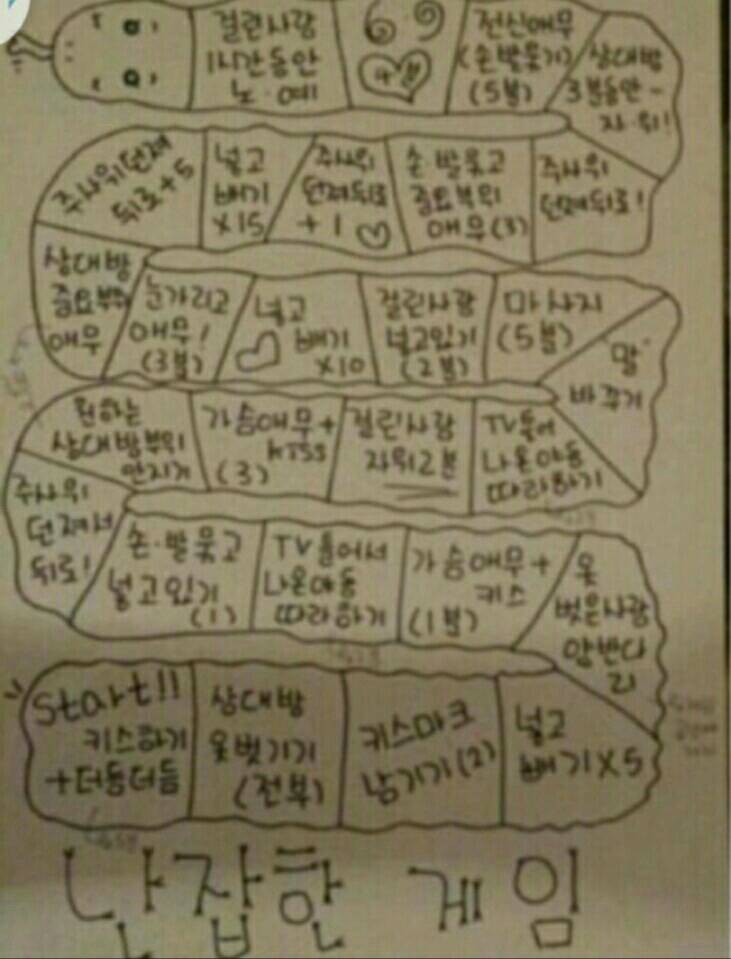 걸린사람
1시간동안
노·예
69
전신애무
(손발묶기)
(5분)
상대방
3분동안
자·위!
주사위던져
뒤로+5
넣고
빼기
X15
주사위
던져뒤로
+1
손·발묶고
중요부위
애무(3)
주사위
던져뒤로!
상대방
중요부위
애무
눈가리고
애무!
(3분)
넣고
빼기
X10
걸린사람
넣고있기
(2분)
마사지
(5분)
"말"
바꾸기
원하는
상대방부위
만지기
가슴애무+
kiss
(3)
걸린사람
자위2분
TV틀어
나온야동
따라하기
주사위
던져서
뒤로!
손·발묶고
넣고있기
(1)
TV틀어서
나온야동
따라하기
가슴애무+
키스
(1분)
옷
벗은사람
앞반다
리
Start!!
키스하기
+더듬더듬
상대방
옷벗기기
(전부)
키스마크
남기기(2)
넣고
빼기X5
난잡한 게임